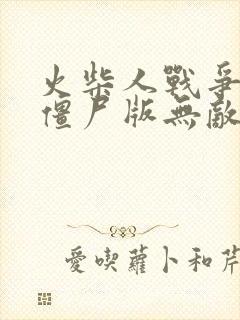 火柴人戰爭
僵尸版無敵
愛喫蘿卜和芹